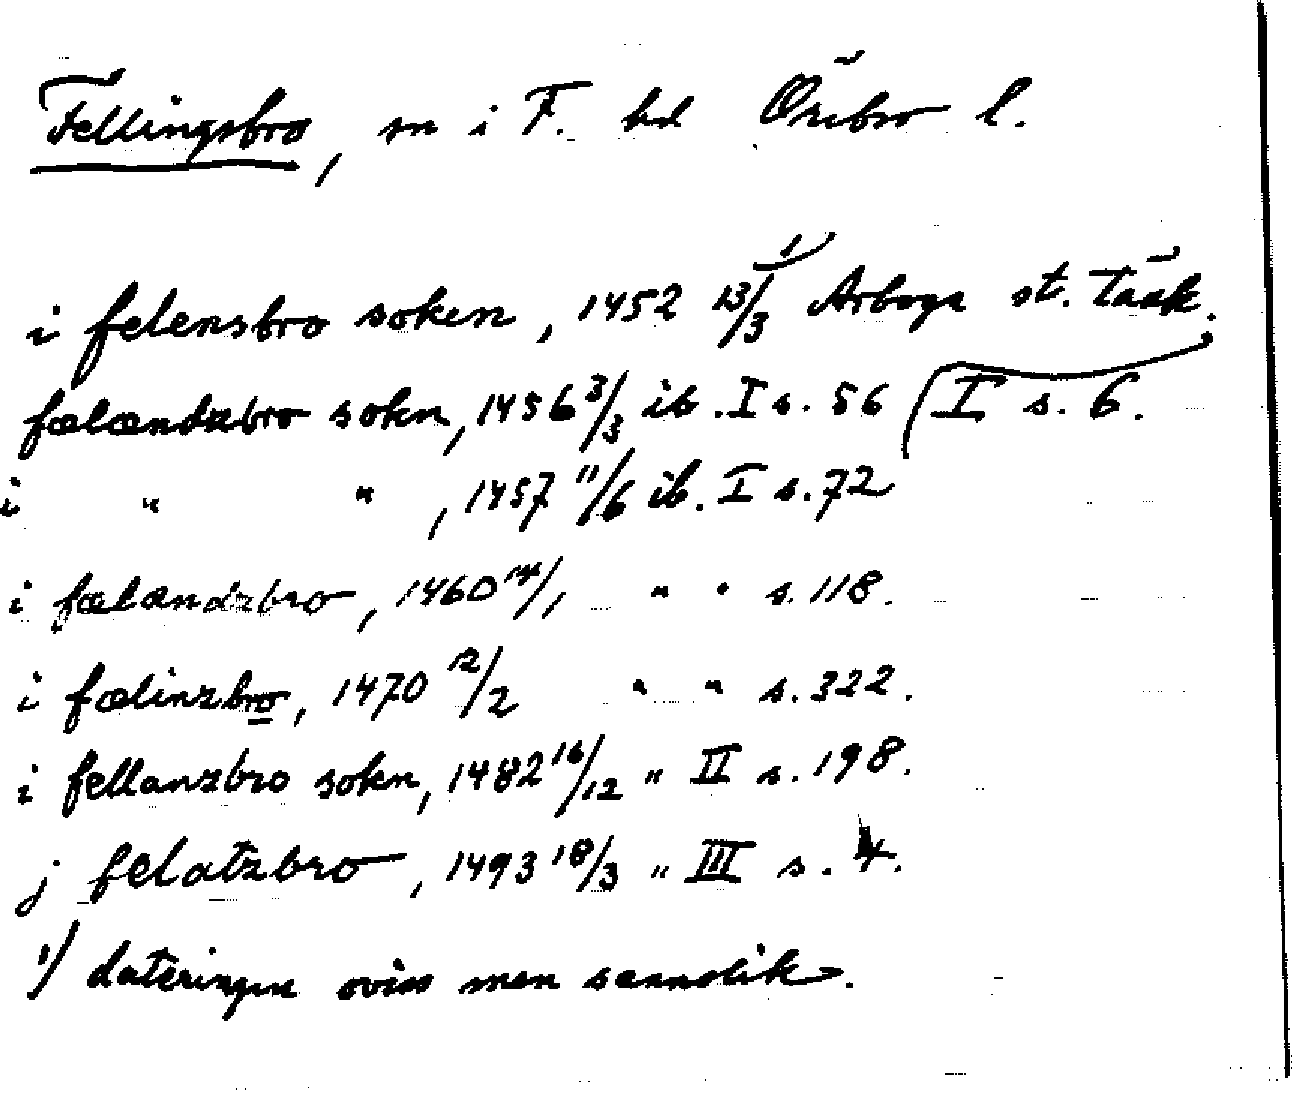 Fellingsbro, sn i F. hd Örebro l.
i felensbro soken, 1452 13/3 1) Arboga st. Tänk.
fælændzbro sokn, 1456 3/3 ib. I s. 56 (I s. 6.
i " " , 1457 11/6 ib. I s. 72
i fælandzbro, 1460 14/1 " " s. 118.
i fælinzbro, 1470 12/2 " " s. 322.
i fellanzbro sokn, 1482 16/12 " II s. 198.
j felatzbro, 1493 18/3 " III s. 4.
1/ dateringen oviss men sannolik.